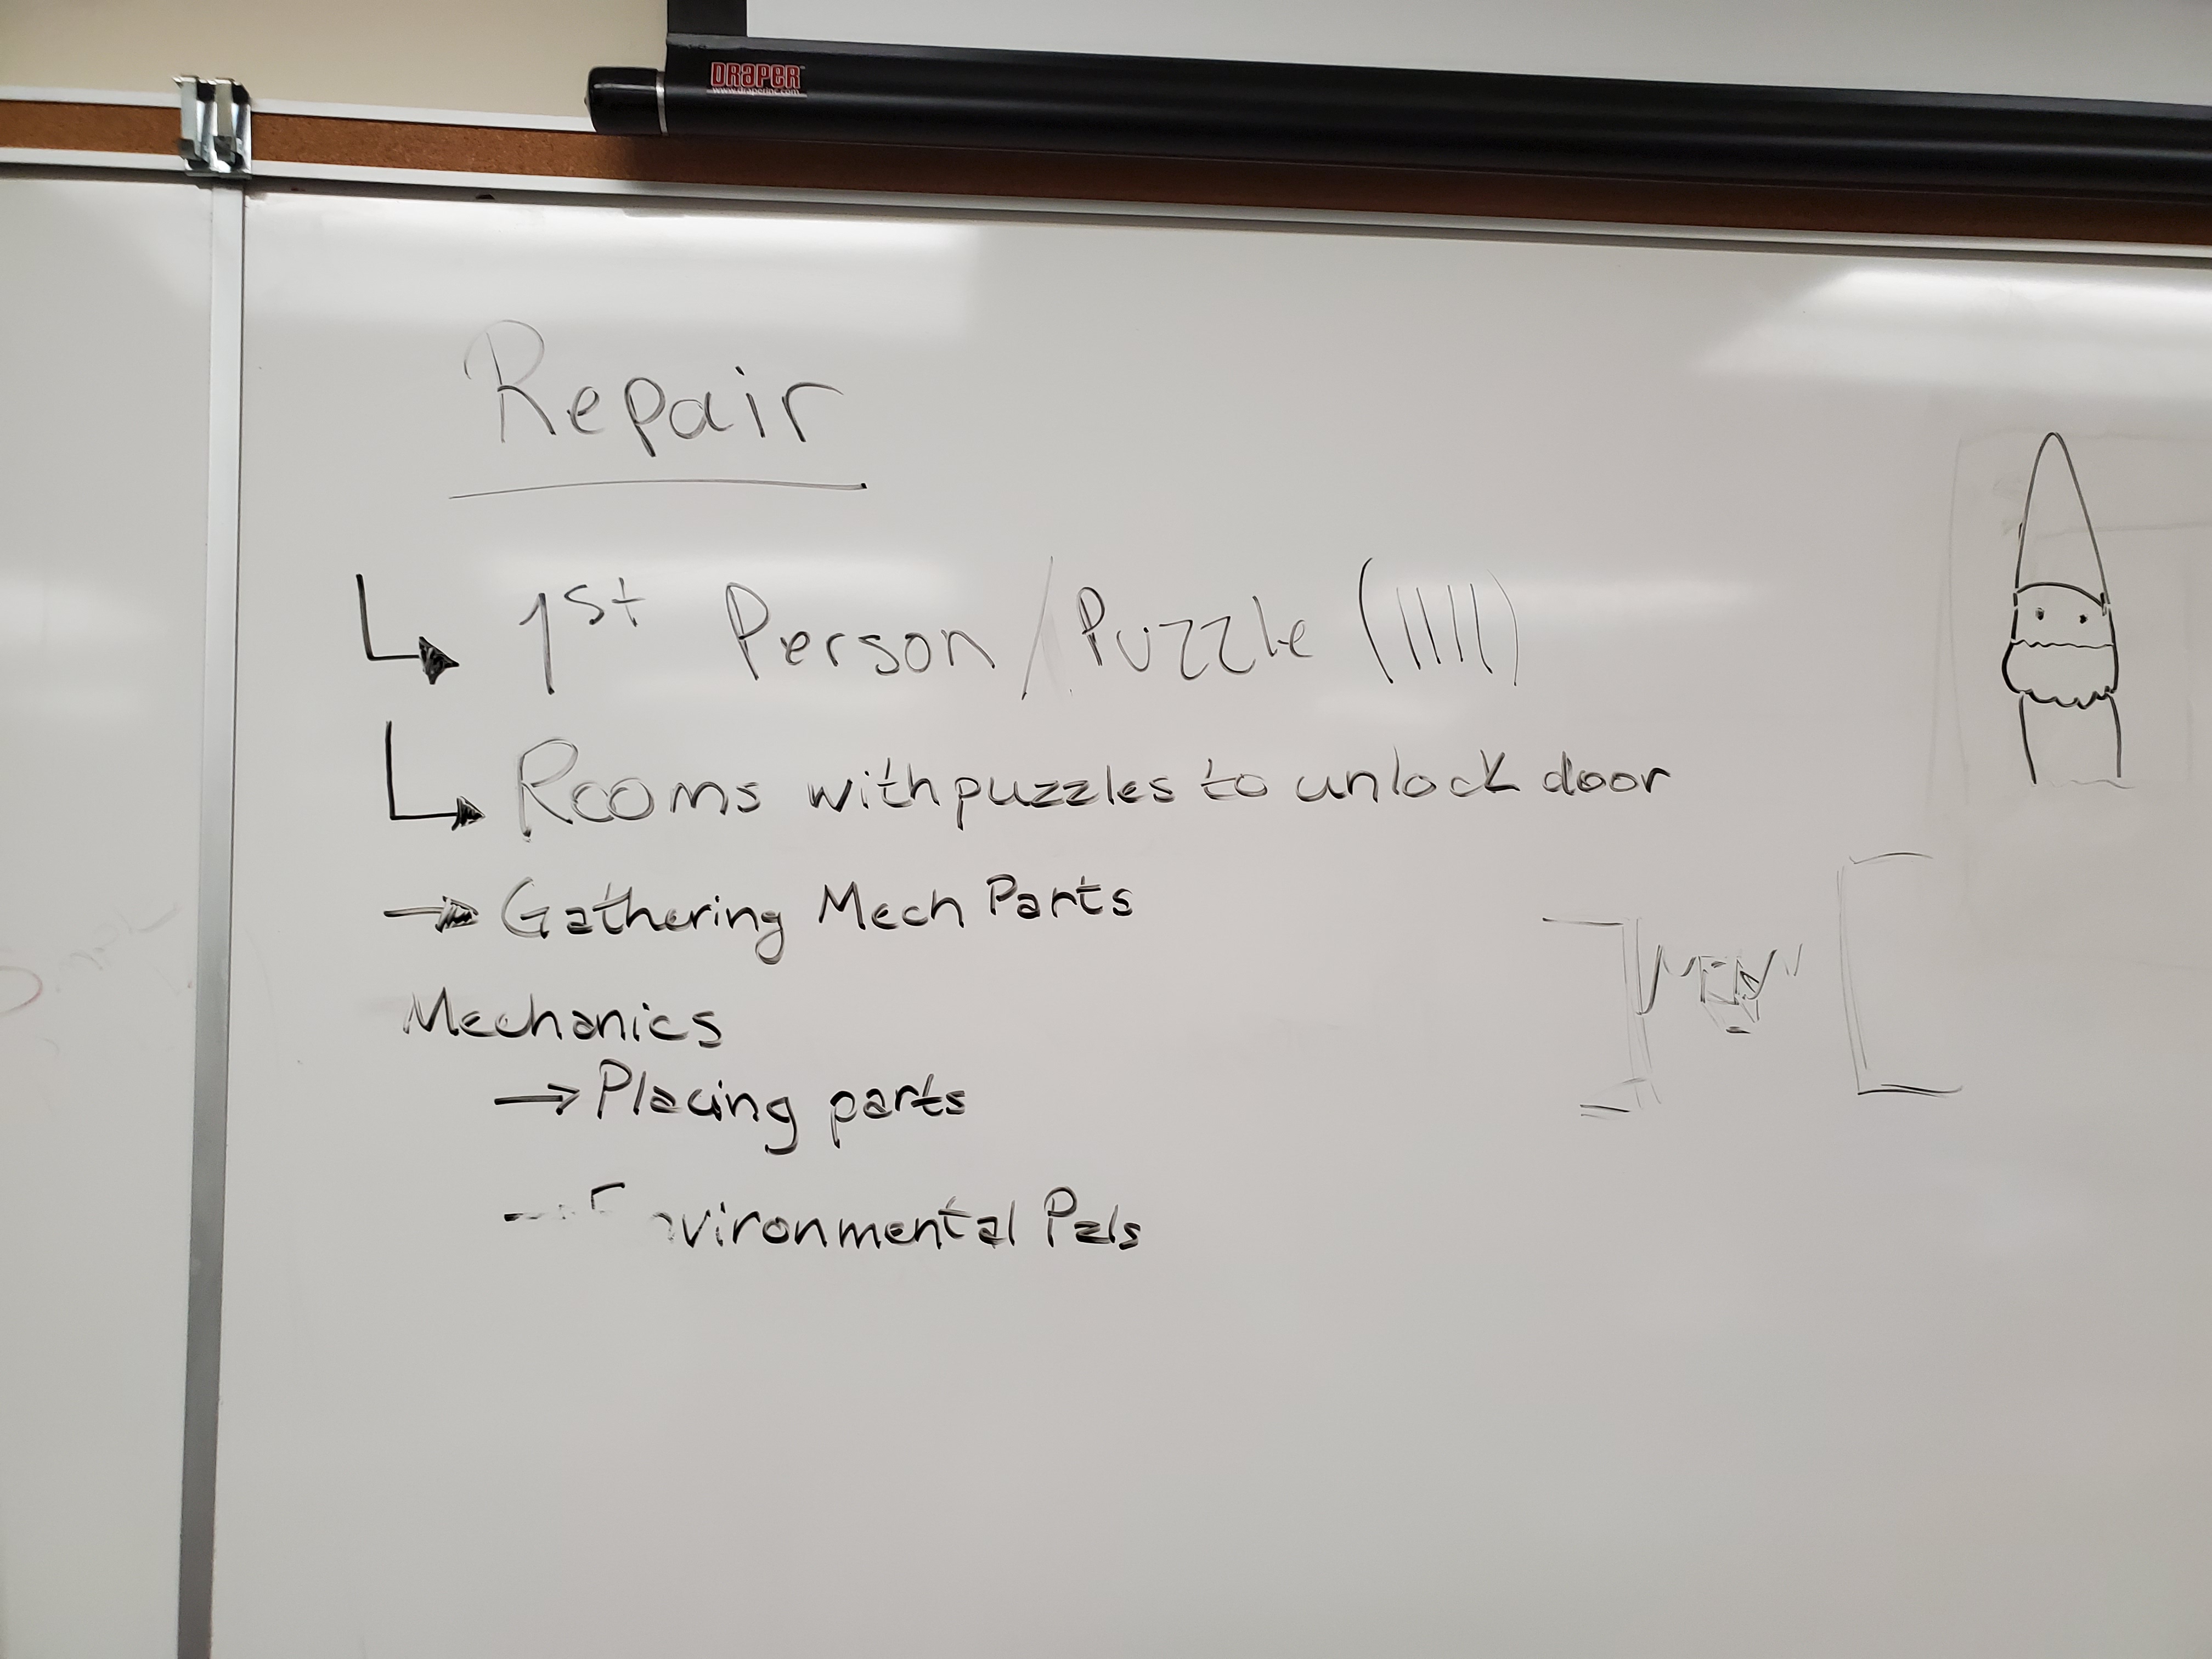 DRAPER
www.draperinc.com
Repair
1st Person/Puzzle (|||||)
Rooms with puzzles to unlock door
→ Gathering Mech Parts
Mechanics
→ Placing parts
Environmental Pzls